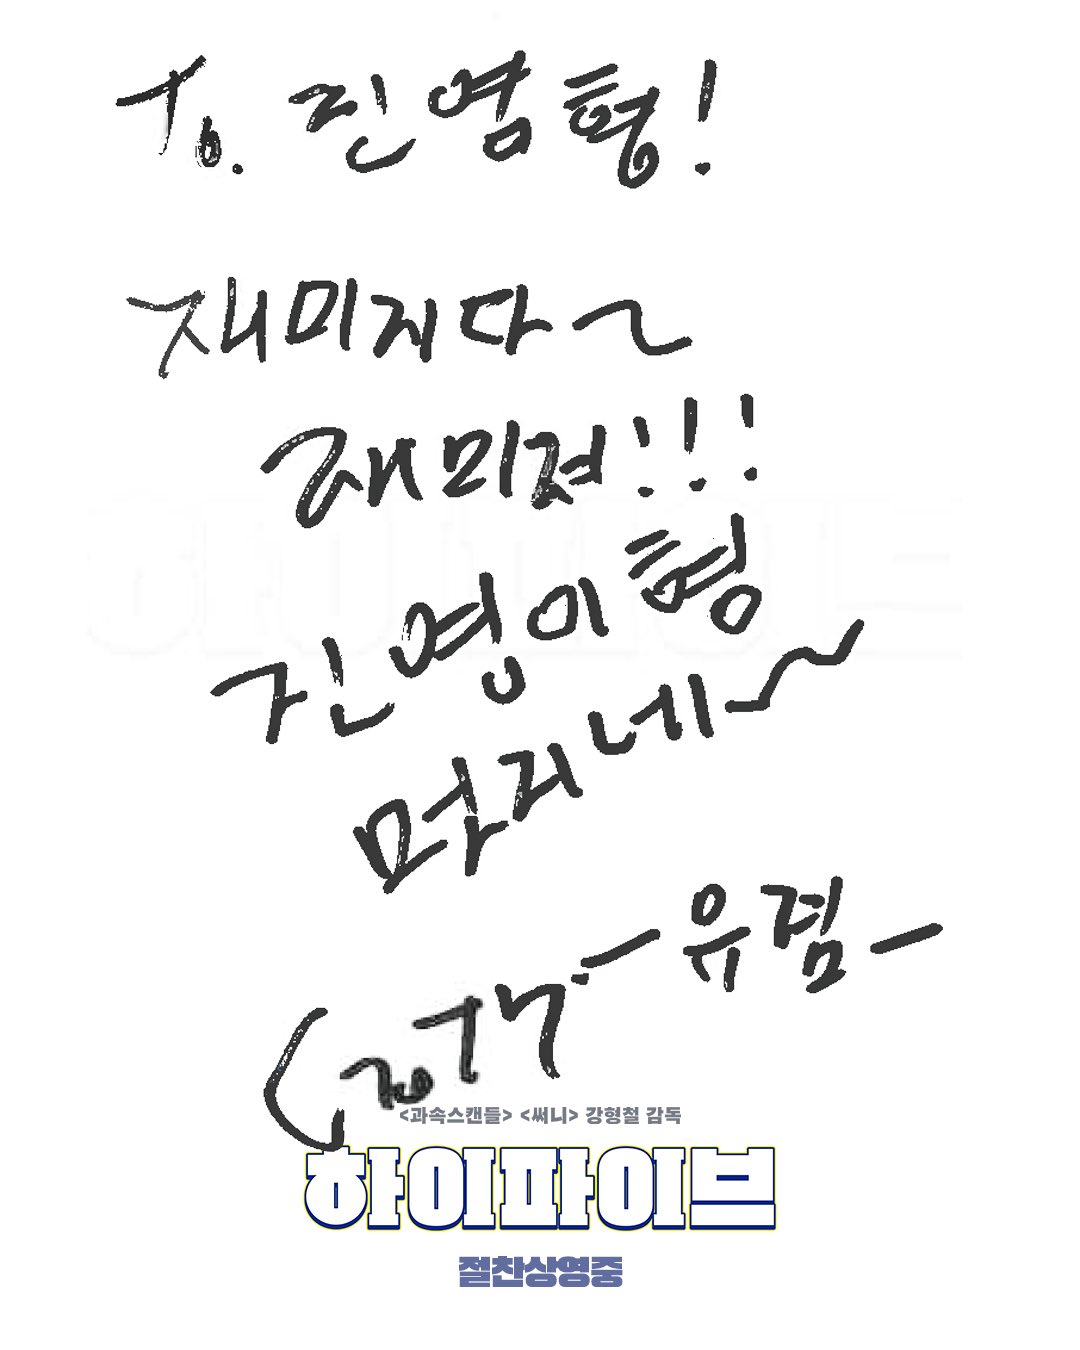 To. 진영형!
재미지다~
재미져!!!
진영이형
멋지네~
-유겸-
<과속스캔들> <써니> 강형철 감독
하이파이브
절찬상영중